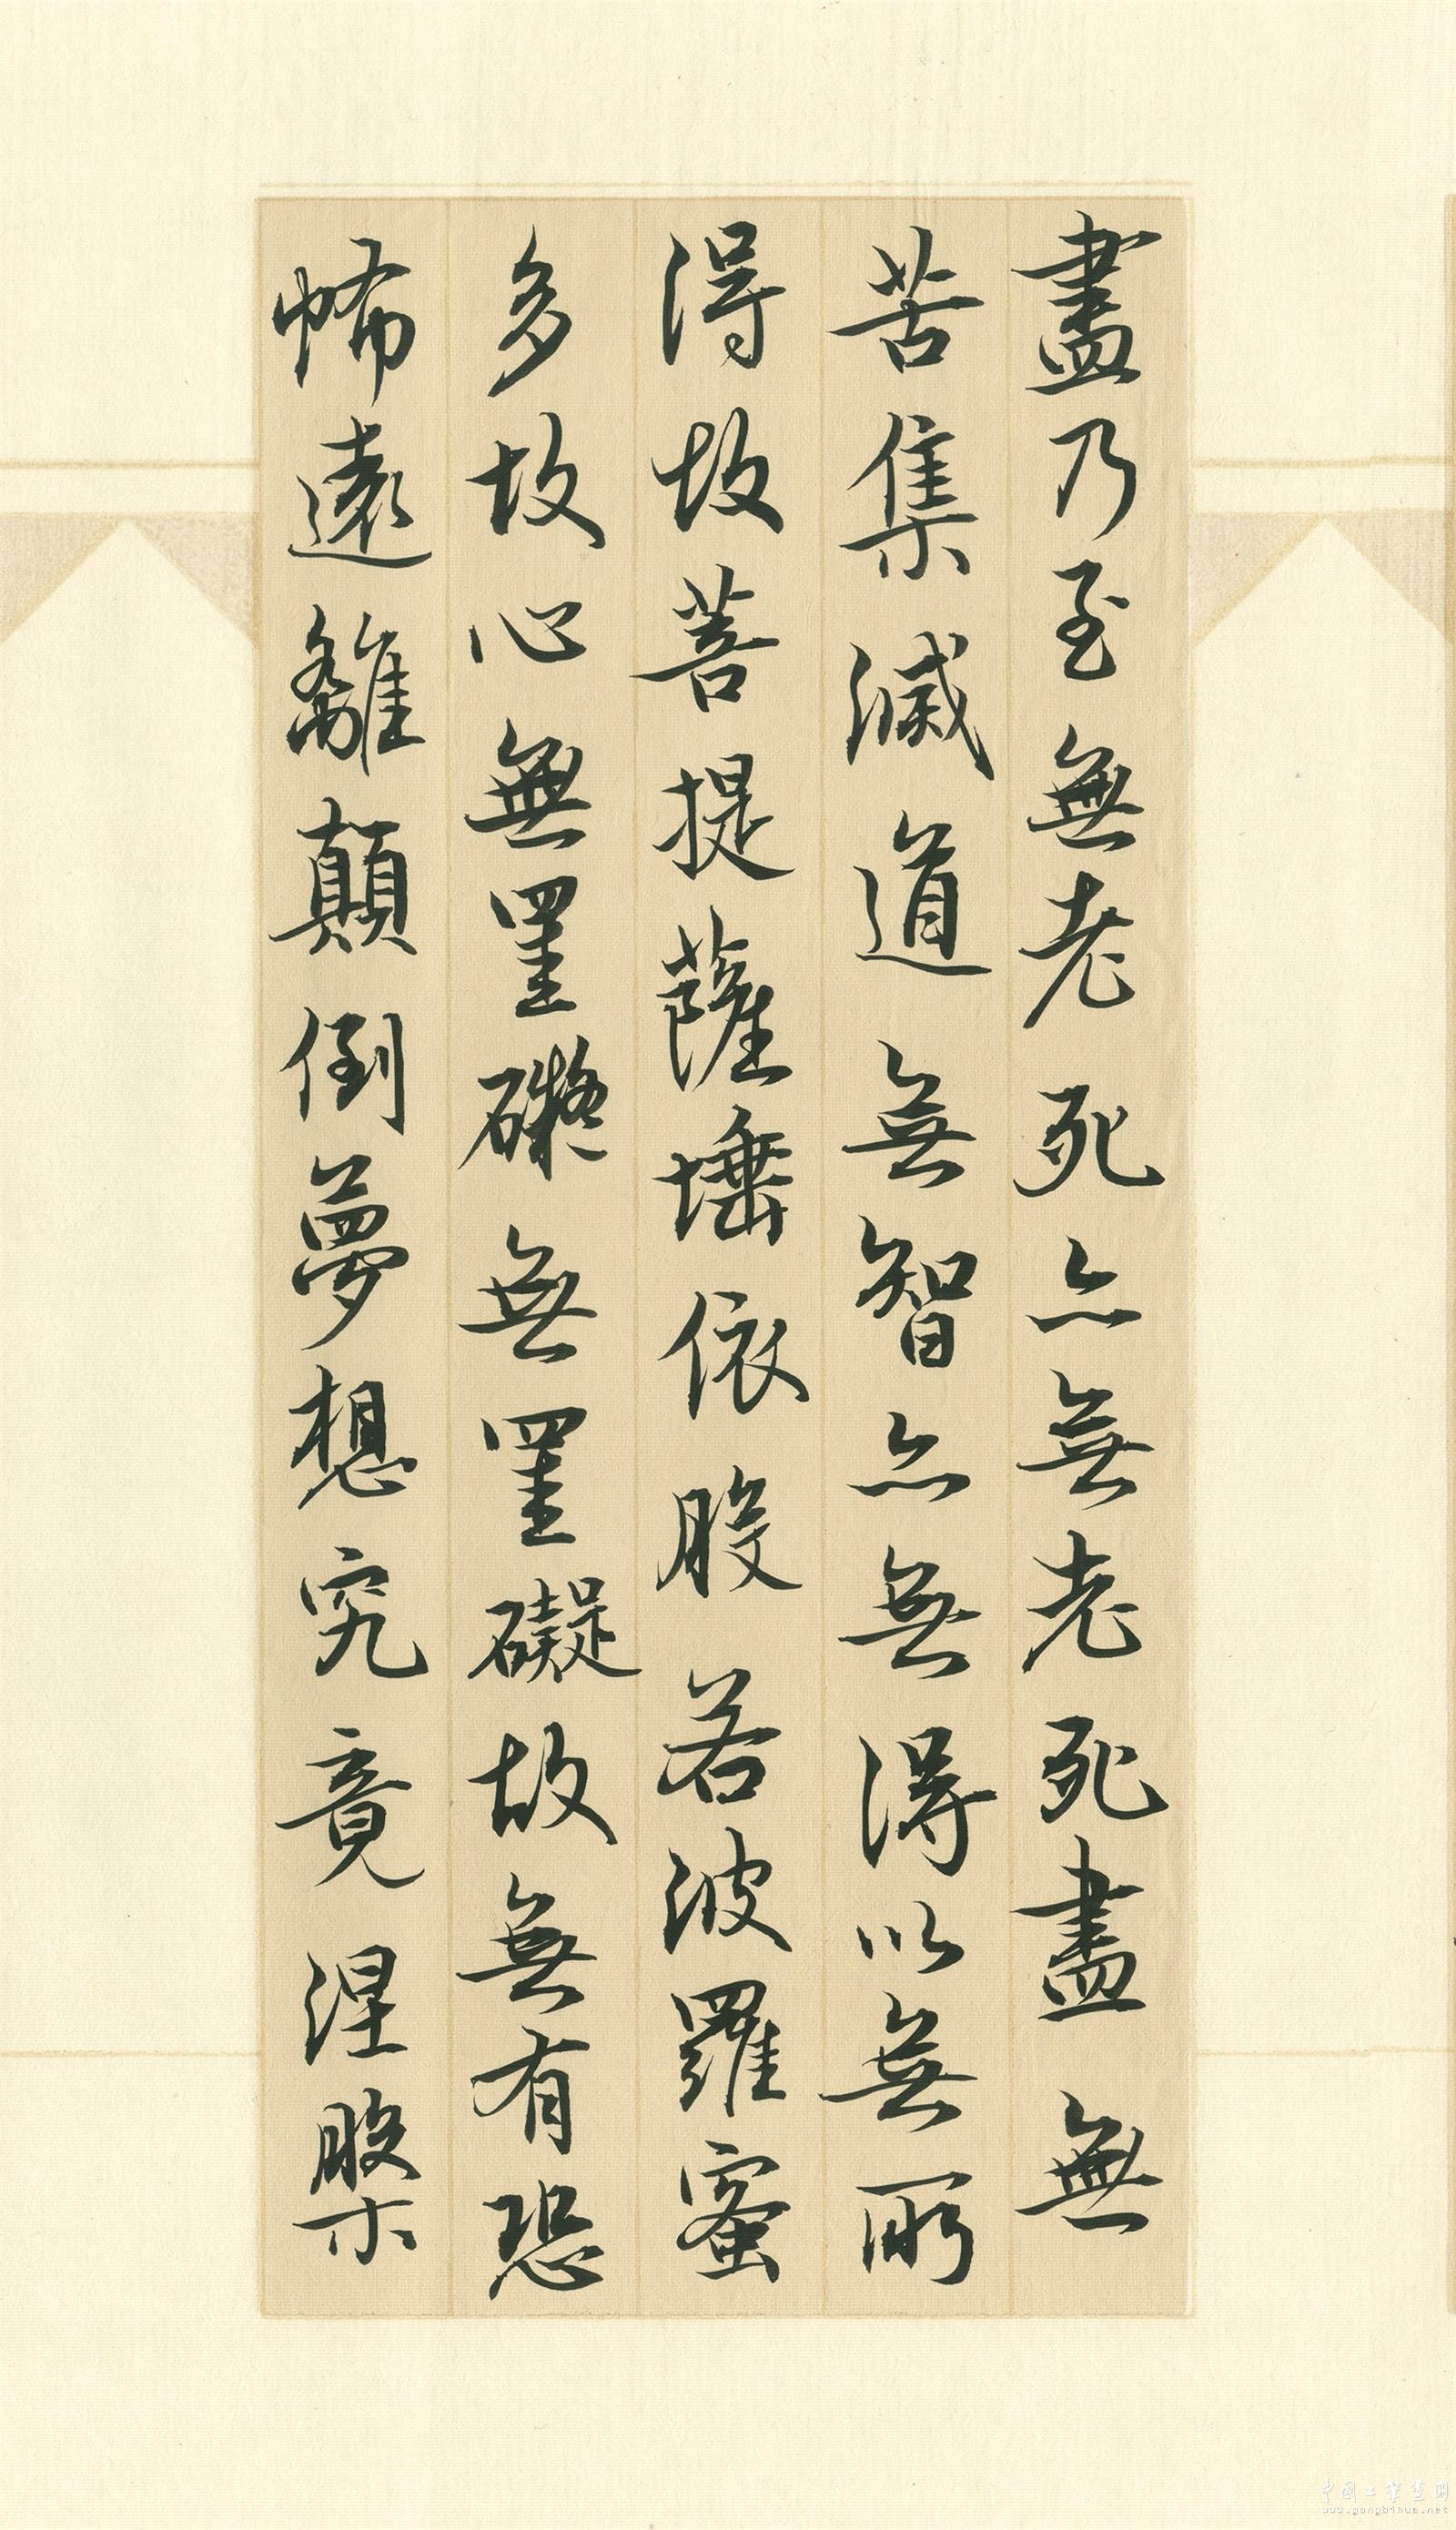 盡乃至無老死亦無老死盡無
苦集滅道無智亦無得以無所
得故菩提薩埵依般若波羅蜜
多故心無罣礙無罣礙故無有恐
怖遠離顛倒夢想究竟涅槃
中国工笔画网
www.gongbihua.net